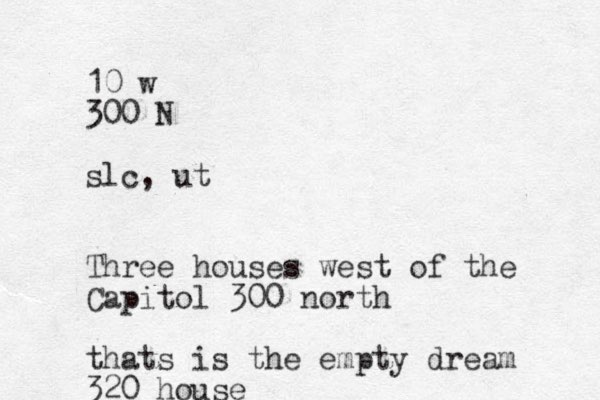 10 w
300 N
slc, ut
Three houses west of the
Capitol 300 north
thats is the empty dream
320 house